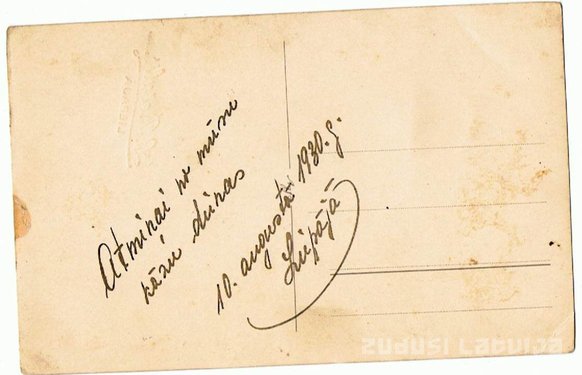 Atminai no mūsu
kāzu dienas
10. augustā 1930. g.
Liepājā
zudusi Latvija